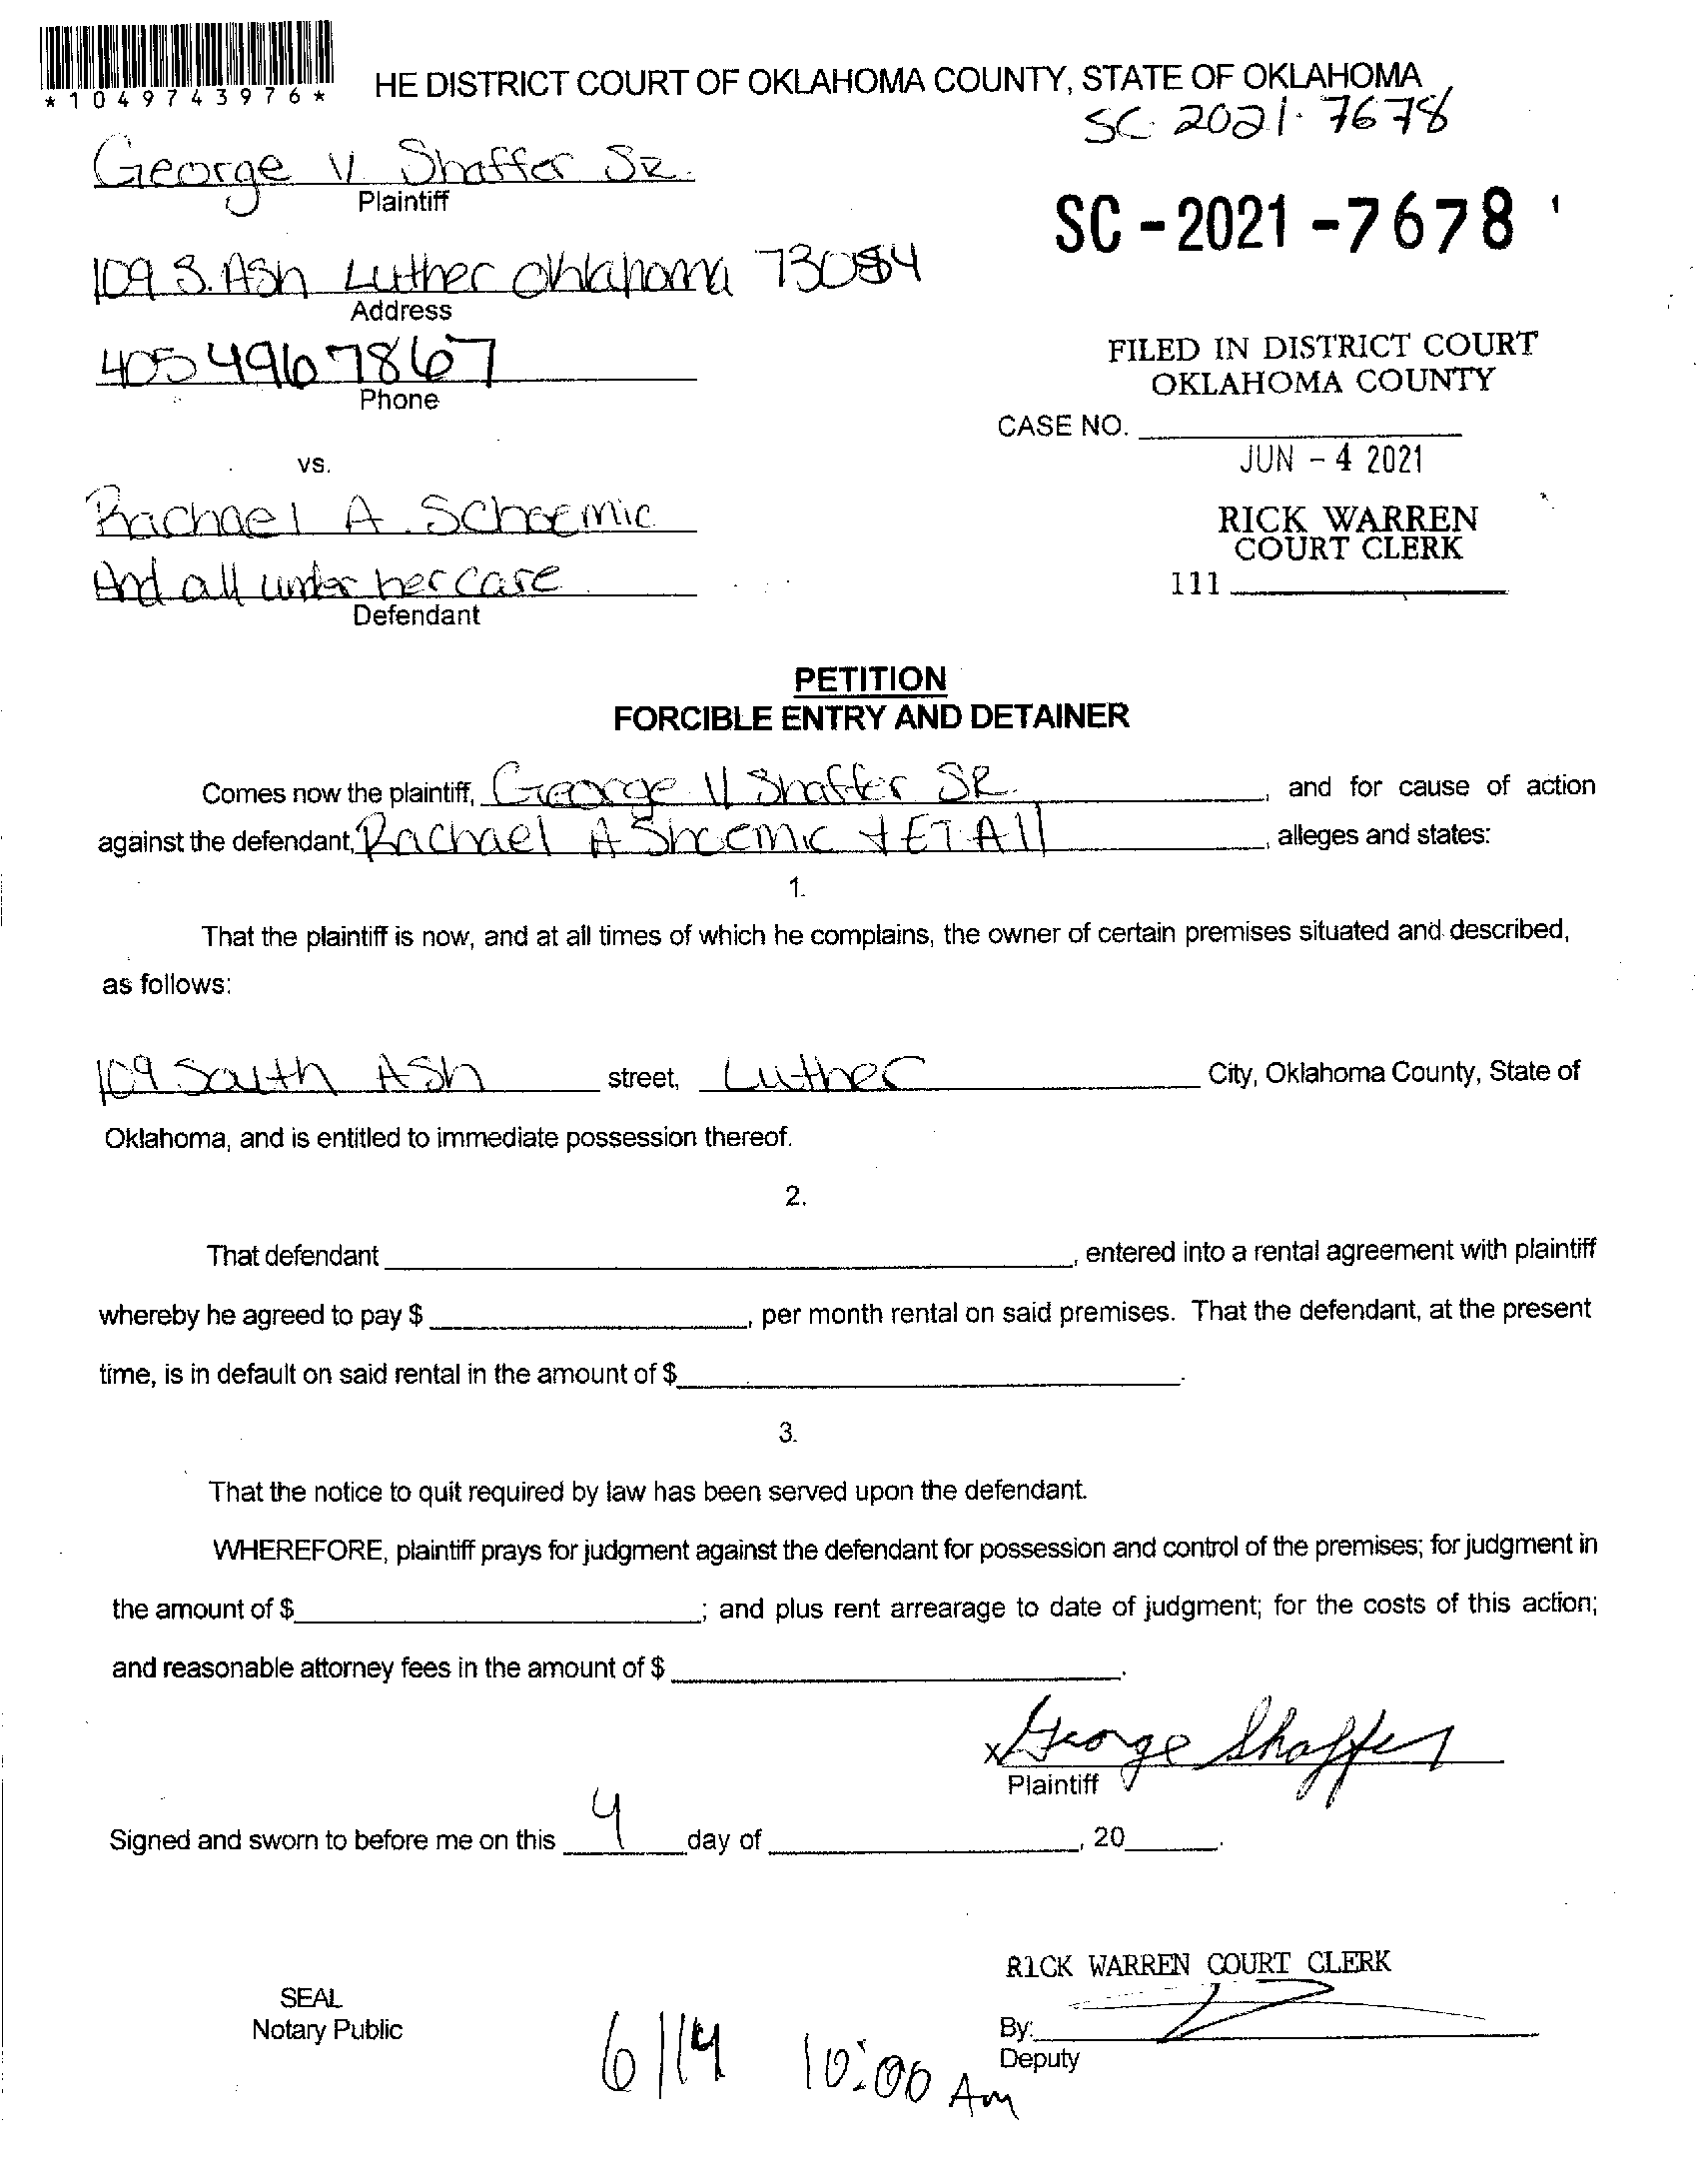 *1049743976*
HE DISTRICT COURT OF OKLAHOMA COUNTY, STATE OF OKLAHOMA
SC 2021-7678
George V. Shaffer Sr.
Plaintiff
SC-2021-7678
109 S. Ash Luther Oklahoma 73054
Address
405 496 7867
Phone
FILED IN DISTRICT COURT
OKLAHOMA COUNTY
CASE NO.
JUN - 4 2021
vs.
Rachael A. Schoemic
RICK WARREN
COURT CLERK
111
And all under her care
Defendant
PETITION
FORCIBLE ENTRY AND DETAINER
Comes now the plaintiff, George V Shaffer SR. , and for cause of action
against the defendant, Rachael A Shoemic + ET All , alleges and states:
1.
That the plaintiff is now, and at all times of which he complains, the owner of certain premises situated and described,
as follows:
109 South Ash street, Luther City, Oklahoma County, State of
Oklahoma, and is entitled to immediate possession thereof.
2.
That defendant , entered into a rental agreement with plaintiff
whereby he agreed to pay $ , per month rental on said premises. That the defendant, at the present
time, is in default on said rental in the amount of $ .
3.
That the notice to quit required by law has been served upon the defendant.
WHEREFORE, plaintiff prays for judgment against the defendant for possession and control of the premises; for judgment in
the amount of $ ; and plus rent arrearage to date of judgment; for the costs of this action;
and reasonable attorney fees in the amount of $ .
x George Shaffer
Plaintiff
Signed and sworn to before me on this 4 day of , 20 .
RICK WARREN COURT CLERK
SEAL
Notary Public
By:
Deputy
6/14 10:00 Am